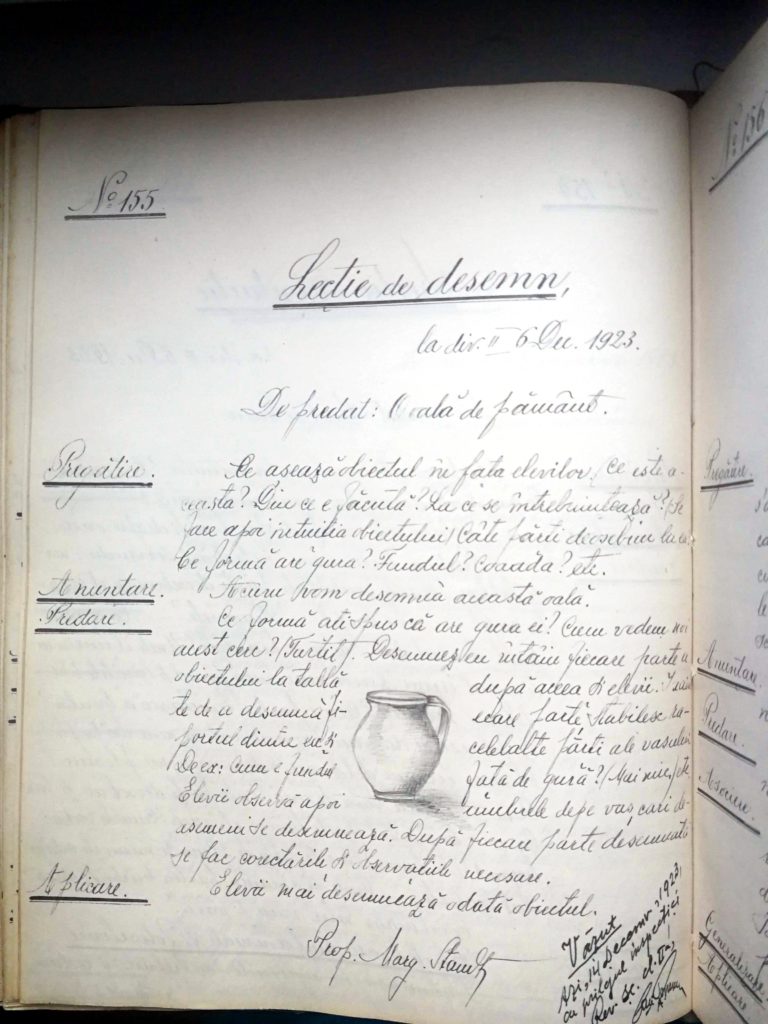 No 155
Lecție de desemn,
la div. II 6 Dec. 1923.
De predat: O oală de pământ.
Pregătire. Se asează obiectul în fața elevilor. Ce este a-
ceasta? Din ce e făcută? La ce se întrebuințează? (Se
face apoi intuiția obiectului) Câte părți deosebim la ea
Ce formă are gura? Fundul? Coada? etc.
Anunțare. Acum vom desemnă această oală.
Predare. Ce formă ați spus că are gura ei? Cum vedem noi
acest cerc? (Turtit). Desemnez eu întâiu fiecare parte a
obiectului la tablă după aceea și elevii.
te de a desemnă fi- ecare parte, stabilesc ra-
portul dintre ele și celelalte părți ale vasului
De ex: Cum e fundul față de gură? (Mai mic, etc
Elevii observă apoi umbrele depe vas, cari de-
asemeni se desemnează. După fiecare parte desemnată
se fac corectările și observațiile necesare.
Aplicare. Elevii mai desemnează odată obiectul.
Prof. Marg.
Văzut
Azi, 14 Decemv. 1923,
cu prilejul inspecției
Rev. sc.
No 156
Pregătire.
Anunțare
Predare.
Asociere.
Generalizare
Aplicare